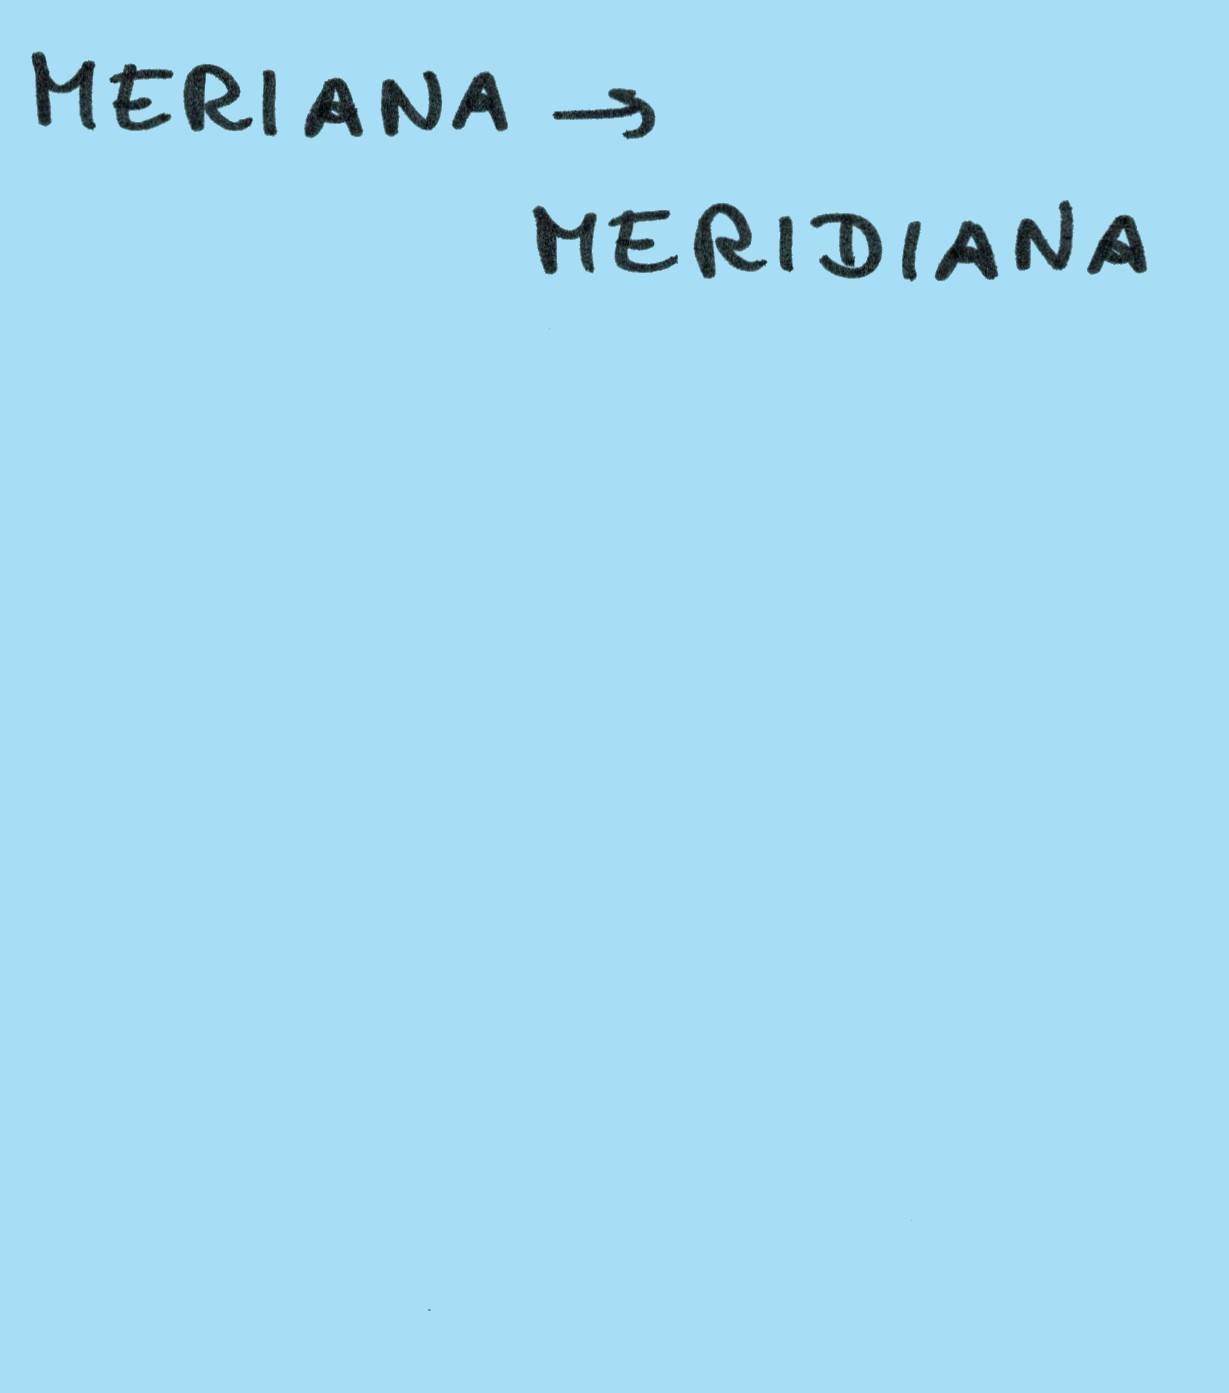 MERIANA →
MERIDIANA